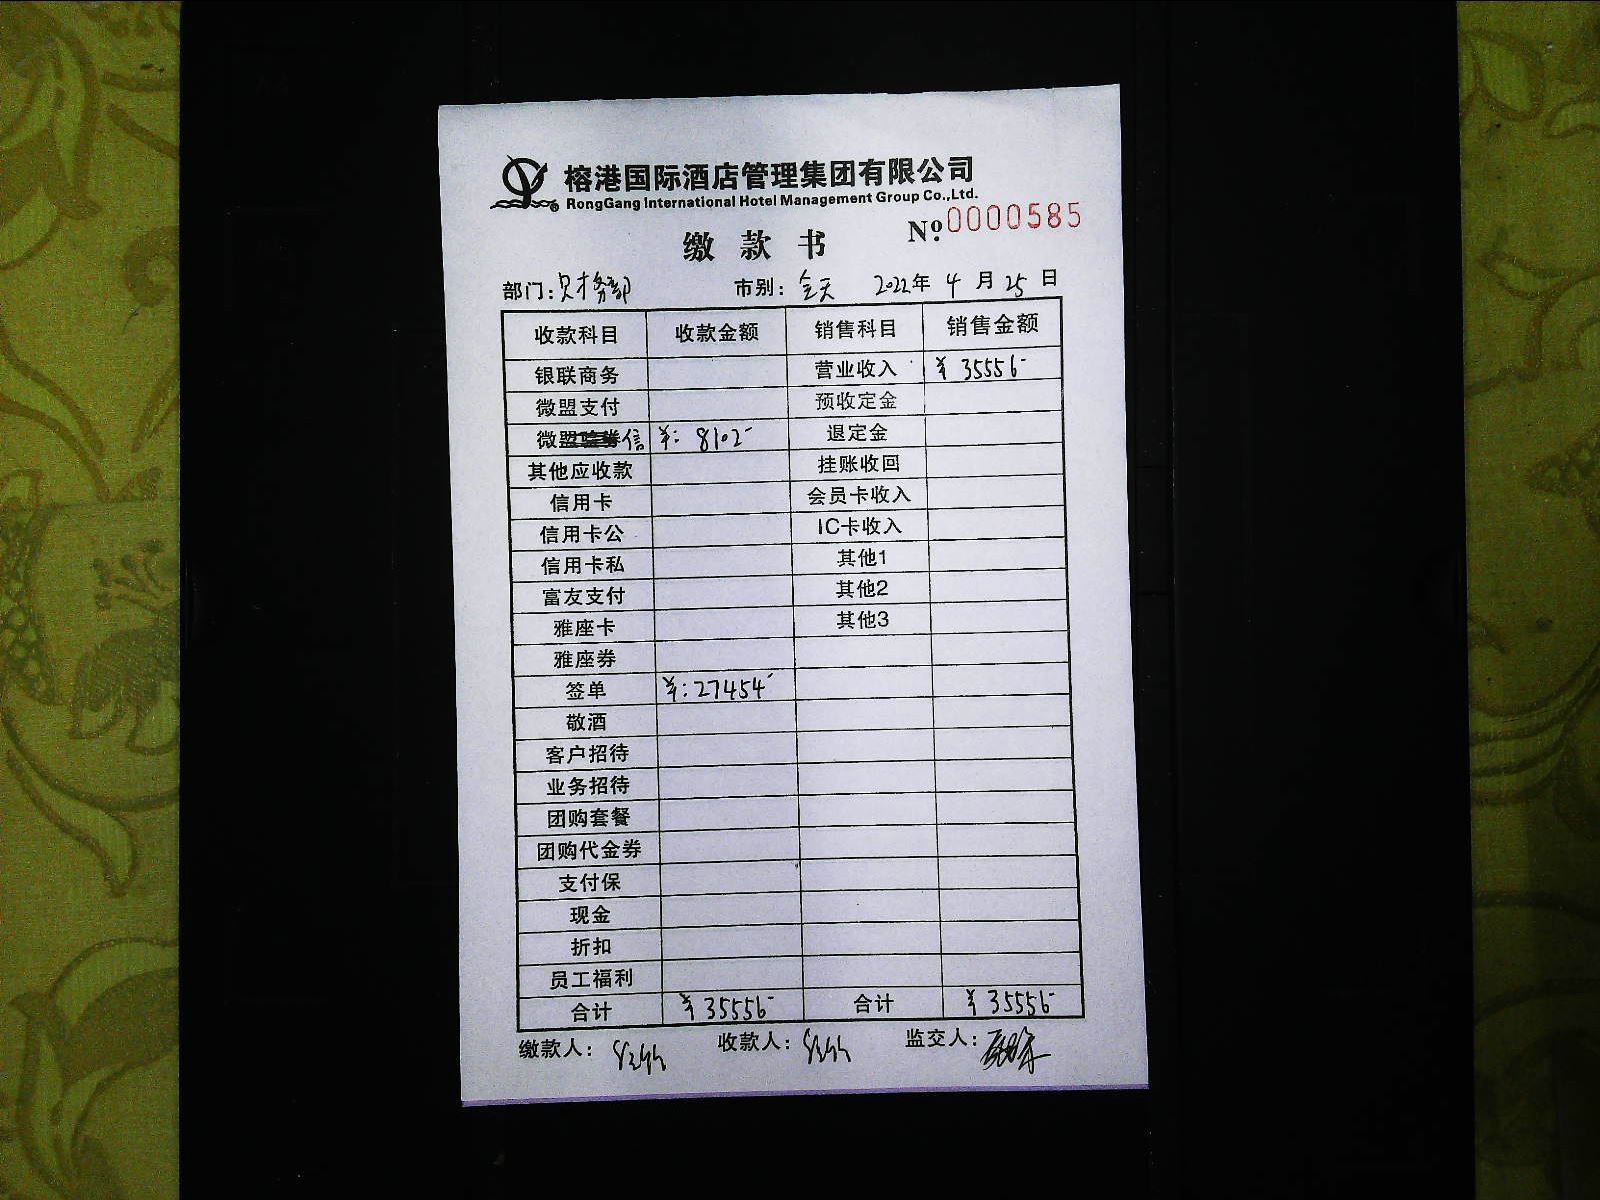 榕港国际酒店管理集团有限公司
RongGang International Hotel Management Group Co.,Ltd.
缴款书 Nº 0000585
部门：财务部 市别：全天 2022年 4月 25日
收款科目 收款金额 销售科目 销售金额
银联商务 营业收入 ¥ 35556-
微盟支付 预收定金
微信 ¥: 8102- 退定金
其他应收款 挂账收回
信用卡 会员卡收入
信用卡公 IC卡收入
信用卡私 其他1
富友支付 其他2
雅座卡 其他3
雅座券
签单 ¥: 27454-
敬酒
客户招待
业务招待
团购套餐
团购代金券
支付保
现金
折扣
员工福利
合计 ¥ 35556- 合计 ¥ 35556-
缴款人： 收款人： 监交人：